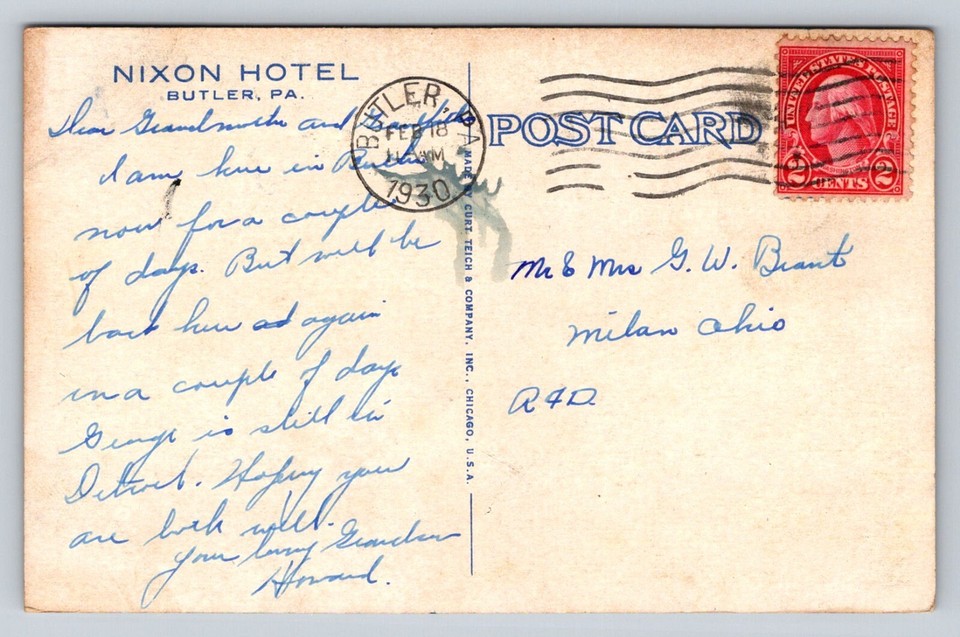 NIXON HOTEL
BUTLER, PA.
Dear Grandmother and Grandfather
I am here in Butler
now for a couple
of days. But will be
back here ad again
in a couple of days
George is still in
Detroit. Hoping you
are both well.
Your loving Grandson
Howard.
BUTLER PA
FEB 18
1930
MADE BY CURT TEICH & COMPANY, INC., CHICAGO, U.S.A.
POST CARD
UNITED STATES POSTAGE
2 CENTS 2
Mr & Mrs G. W. Brant
Milan Ohio
RFD.